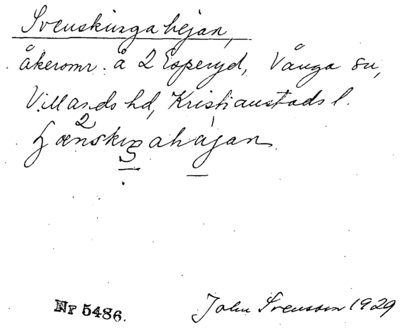 Svenskungahejan,
åkeromr. å 2 Esperyd, Vånga sn,
Villands hd, Kristianstads l.
Nr 5486.
John Svensson 1929